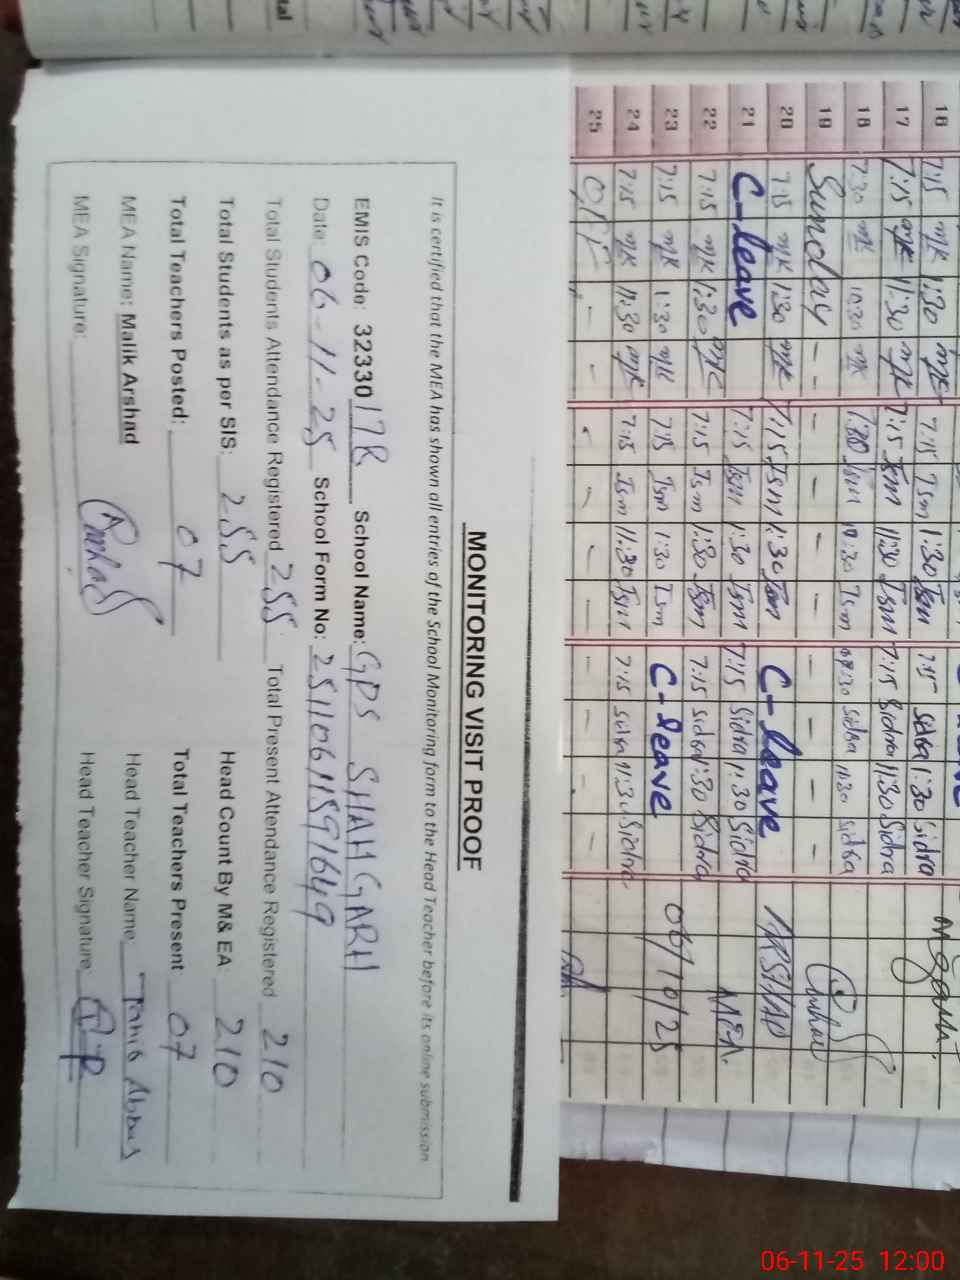 16 7:15 mk 1:30 mk 7:15 Ism 1:30 Ism 7:15 Sidra 1:30 Sidra
17 7:15 mk 11:30 mk 7:15 Ism 11:30 Ism 7:15 Sidra 11:30 Sidra
18 7:30 mk 10:30 mk 7:30 Ism 10:30 Ism 7:30 Sidra 10:30 Sidra
19 Sunday - - - - - - - - - -
20 7:15 mk 1:30 mk 7:15 Ism 1:30 Ism C-leave ARSHAD
21 C-leave 7:15 Ism 1:30 Ism 7:15 Sidra 1:30 Sidra MEA.
22 7:15 mk 1:30 mk 7:15 Ism 1:30 Ism 7:15 Sidra 1:30 Sidra
23 7:15 mk 1:30 mk 7:15 Ism 1:30 Ism C-leave 06/10/25
24 7:15 mk 11:30 mk 7:15 Ism 11:30 Ism 7:15 Sidra 11:30 Sidra
25
MONITORING VISIT PROOF
It is certified that the MEA has shown all entries of the School Monitoring form to the Head Teacher before its online submission
EMIS Code: 32330178 School Name: GPS SHAH GARH
Date: 06-11-25 School Form No: 25110611591649
Total Students Attendance Registered 255 Total Present Attendance Registered 210
Total Students as per SIS: 255 Head Count By M& EA: 210
Total Teachers Posted: 07 Total Teachers Present 07
MEA Name: Malik Arshad Head Teacher Name: Abbas
MEA Signature: Head Teacher Signature
06-11-25 12:00